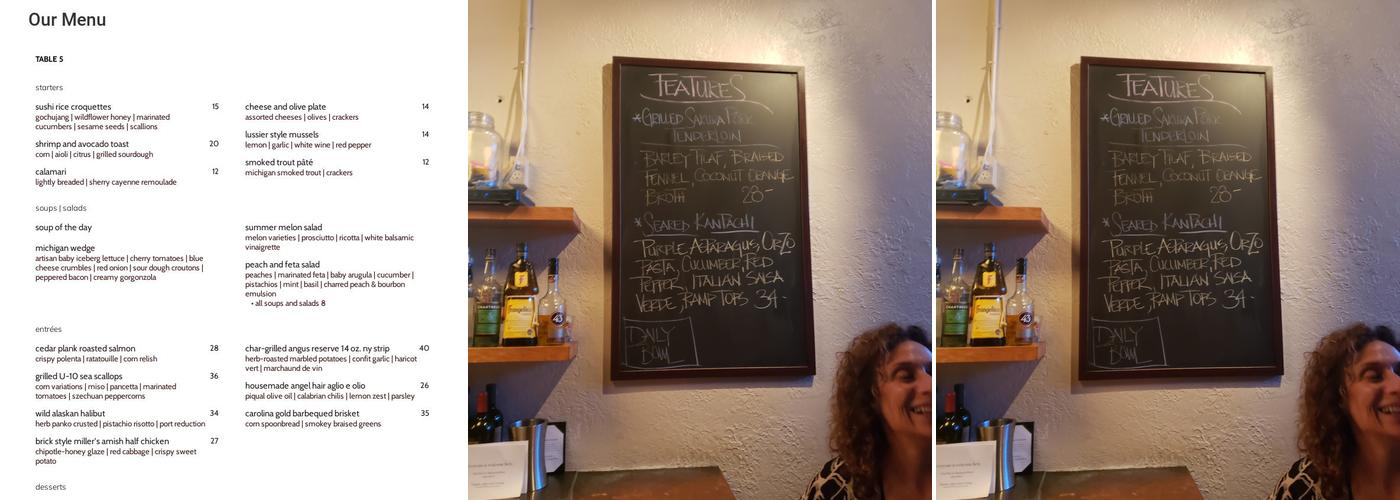 Our Menu
TABLE 5
starters
sushi rice croquettes 15
gochujang | wildflower honey | marinated
cucumbers | sesame seeds | scallions
shrimp and avocado toast 20
corn | aioli | citrus | grilled sourdough
calamari 12
lightly breaded | sherry cayenne remoulade
cheese and olive plate 14
assorted cheeses | olives | crackers
lussier style mussels 14
lemon | garlic | white wine | red pepper
smoked trout pâté 12
michigan smoked trout | crackers
soups | salads
soup of the day
michigan wedge
artisan baby iceberg lettuce | cherry tomatoes | blue
cheese crumbles | red onion | sour dough croutons |
peppered bacon | creamy gorgonzola
summer melon salad
melon varieties | prosciutto | ricotta | white balsamic
vinaigrette
peach and feta salad
peaches | marinated feta | baby arugula | cucumber |
pistachios | mint | basil | charred peach & bourbon
emulsion
• all soups and salads 8
entrées
cedar plank roasted salmon 28
crispy polenta | ratatouille | corn relish
grilled U-10 sea scallops 36
corn variations | miso | pancetta | marinated
tomatoes | szechuan peppercorns
wild alaskan halibut 34
herb panko crusted | pistachio risotto | port reduction
brick style miller's amish half chicken 27
chipotle-honey glaze | red cabbage | crispy sweet
potato
char-grilled angus reserve 14 oz. ny strip 40
herb-roasted marbled potatoes | confit garlic | haricot
vert | marchaund de vin
housemade angel hair aglio e olio 26
piqual olive oil | calabrian chilis | lemon zest | parsley
carolina gold barbequed brisket 35
corn spoonbread | smokey braised greens
desserts
FEATURES
*GRILLED SAKURA PORK
TENDERLOIN
BARLEY PILAF, BRAISED
FENNEL, COCONUT ORANGE
BROTH 28-
*SEARED KANPACHI
PURPLE ASPARAGUS, ORZO
PASTA, CUCUMBER, RED
PEPPER, ITALIAN SALSA
VERDE, RAMP TOPS 34-
DAILY
BOWL
Frangelico
43
FEATURES
*GRILLED SAKURA PORK
TENDERLOIN
BARLEY PILAF, BRAISED
FENNEL, COCONUT ORANGE
BROTH 28-
*SEARED KANPACHI
PURPLE ASPARAGUS, ORZO
PASTA, CUCUMBER, RED
PEPPER, ITALIAN SALSA
VERDE, RAMP TOPS 34-
DAILY
BOWL
Frangelico
43